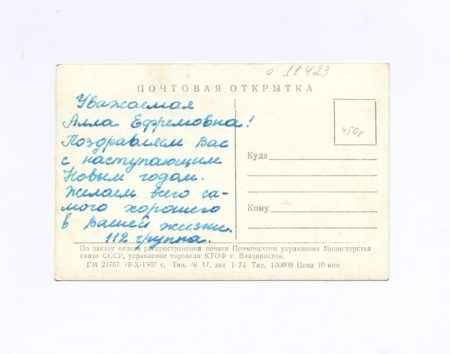 о 11423
ПОЧТОВАЯ ОТКРЫТКА
Уважаемая
Алла Ефремовна!
Поздравляем Вас
с наступающим
Новым годом.
Желаем всего са-
мого хорошего
в Вашей жизни.
112 группа.
450р
Куда
Кому
По заказу отдела распространения печати Приморского управления Министерства
связи СССР, управление торговли КТОФ г. Владивосток.
ГМ 23767 19-X-1967 г. Тип. № 17, зак 1 74 Тир. 100000 Цена 10 коп